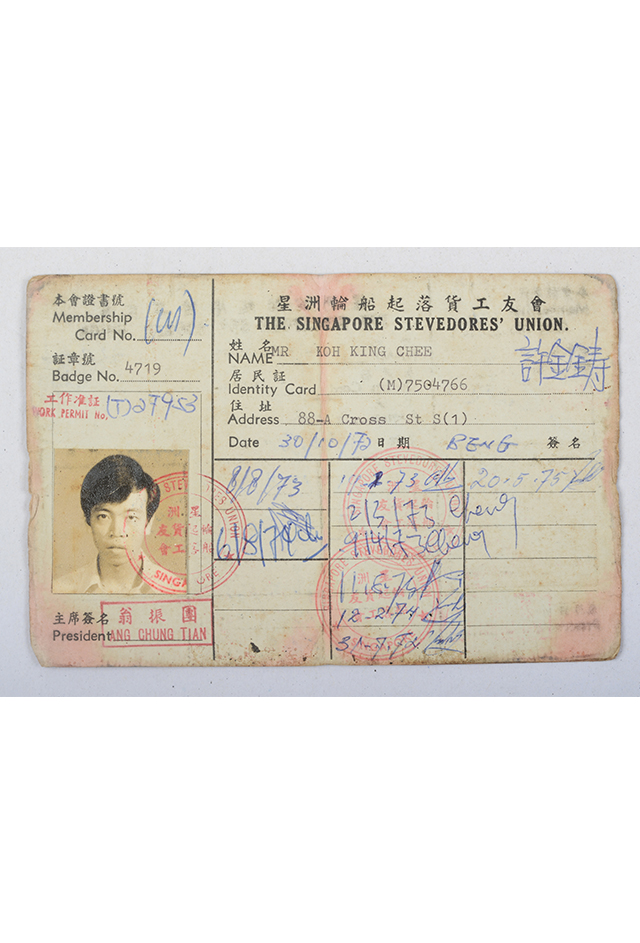 本會證書號
Membership
Card No.
証章號
Badge No. 4719
工作准証
WORK PERMIT No. (J)27953
主席簽名
President
翁振團
ANG CHUNG TIAN
星洲輪船起落貨工友會
THE SINGAPORE STEVEDORES' UNION.
姓名
NAME MR KOH KING CHEE
許金鋳
居民証
Identity Card (M)7504766
住址
Address 88-A Cross St S(1)
Date 30/10/72 日期 BENG 簽名
8/8/73
6/8/74
2/3/73 Cheng
9/4/73 Cheng
18-2-74
20.5.75